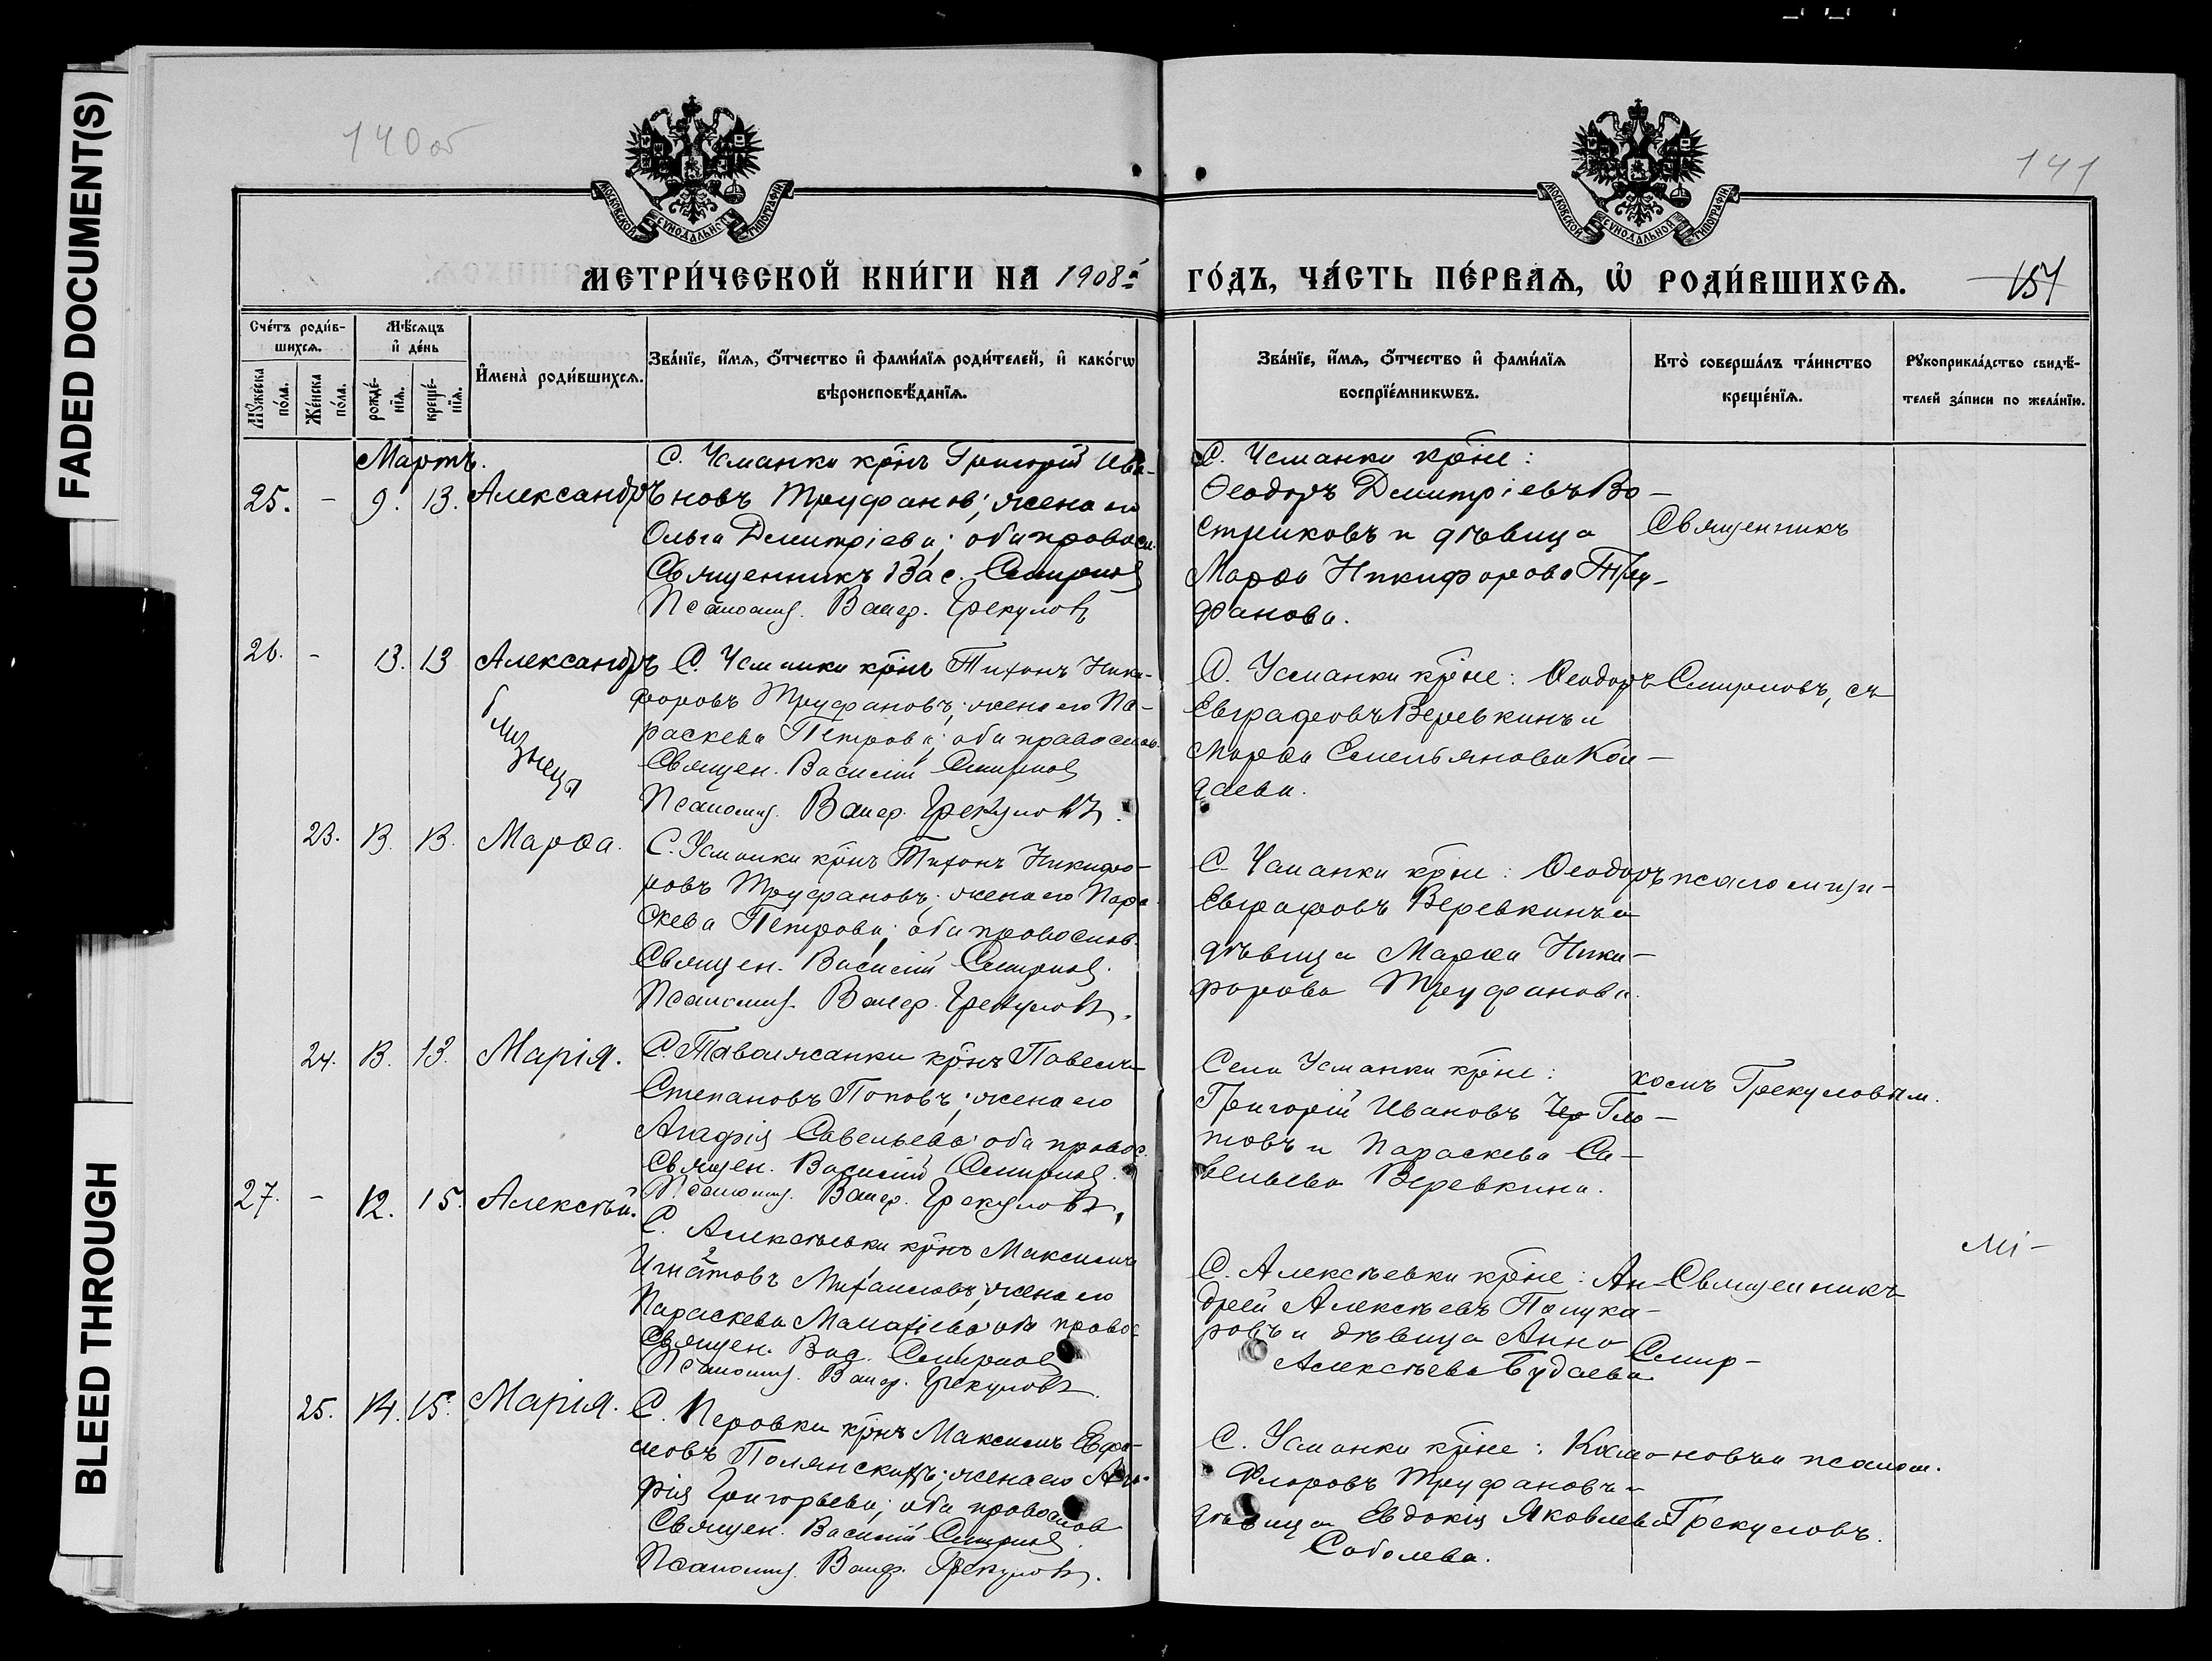 FADED DOCUMENT(S)
BLEED THROUGH
140 об
141
МОСКОВСКОЙ СѴНОДАЛЬНОЙ ТИПОГРАФІИ
МОСКОВСКОЙ СѴНОДАЛЬНОЙ ТИПОГРАФІИ
МЕТРИ́ЧЕСКОЙ КНИ́ГИ НА 1908й
ГО́ДЪ, ЧА́СТЬ ПЕ́РВАѦ, Ѡ҆ РОДИ́ВШИХСѦ.
151
Сче́тъ роди́в-
шихсѧ.
Мꙋ́жеска
по́ла.
Же́нска
по́ла.
Мѣ́сѧцъ
и҆ де́нь
рожде́-
нїѧ.
креще́-
нїѧ.
И҆мена̀ роди́вшихсѧ.
Зва́нїе, и҆́мѧ, ѻ҆́тчество и҆ фами́лїѧ роди́телей, и҆ како́гѡ
вѣроисповѣ́данїѧ.
Зва́нїе, и҆́мѧ, ѻ҆́тчество и҆ фами́лїѧ
воспрїе́мникѡвъ.
Кто̀ соверша́лъ та́инство
креще́нїѧ.
Рꙋкоприкла́дство свидѣ́-
телей за́писи по жела́нїю.
Мартъ.
25. - 9. 13. Александръ
С. Усманки крнъ Григорій Ива-
новъ Труфановъ; жена его
Ольга Димитріева; оба правосл.
Священникъ Вас. Смирнов
Псаломщ. Валер. Грекулов
С. Усманки крне:
Ѳеодоръ Димитріевъ Во-
стриковъ и дѣвица
Марѳа Никифорова Тру-
фанова.
Священникъ
26. - 13. 13 Александръ
близнецы
С. Усманки крнъ Тихонъ Ники-
форовъ Труфановъ; жена его Па-
раскева Петрова; оба православ.
Священ. Василій Смирнов
Псаломщ. Валер. Грекуловъ.
С. Усманки крне: Ѳеодоръ
Евграфовъ Веревкинъ и
Марѳа Емельянова Кон-
даева.
Смирновъ, съ
23. 13. 13. Марѳа.
С. Усманки крнъ Тихонъ Никифо-
ровъ Труфановъ; жена его Пара-
скева Петрова; оба православ.
Священ. Василій Смирнов.
Псаломщ. Валер. Грекуловъ.
С. Усманки крне: Ѳеодоръ
Евграфовъ Веревкинъ и
дѣвица Марѳа Ники-
форова Труфанова.
псаломщи-
24. 13. 13. Марія.
С. Таволжанки крнъ Павелъ
Степановъ Поповъ; жена его
Агафія Савельева; оба правос.
Священ. Василій Смирнов.
Псаломщ. Валер. Грекуловъ.
Села Усманки крне:
Григорій Ивановъ Гло-
товъ и Параскева Са-
вельева Веревкина.
комъ Грекуловым.
27. - 12. 15. Алексѣй.
С. Алексѣевки крнъ Максимъ
Игнатовъ Михаиловъ; жена его
Параскева Малахіева оба правос
Священ. Вас. Смирнов
Псаломщ. Валер. Грекуловъ.
С. Алексѣевки крне: Ан-
дрей Алексѣевъ Полука-
ровъ и дѣвица Анна
Алексѣева Будаева
Священникъ
Смир-
25. 14. 15. Марія.
С. Перовки крнъ Максимъ Ефи-
мовъ Полянскихъ; жена его Ага-
фія Григорьева; оба православ
Священ. Василій Смирнов.
Псаломщ. Валер. Грекуловъ.
С. Усманки крне: Косма
Флоровъ Труфановъ и
дѣвица Евдокія Яковлева
Соболева.
новъ и псалом.
Грекуловъ.